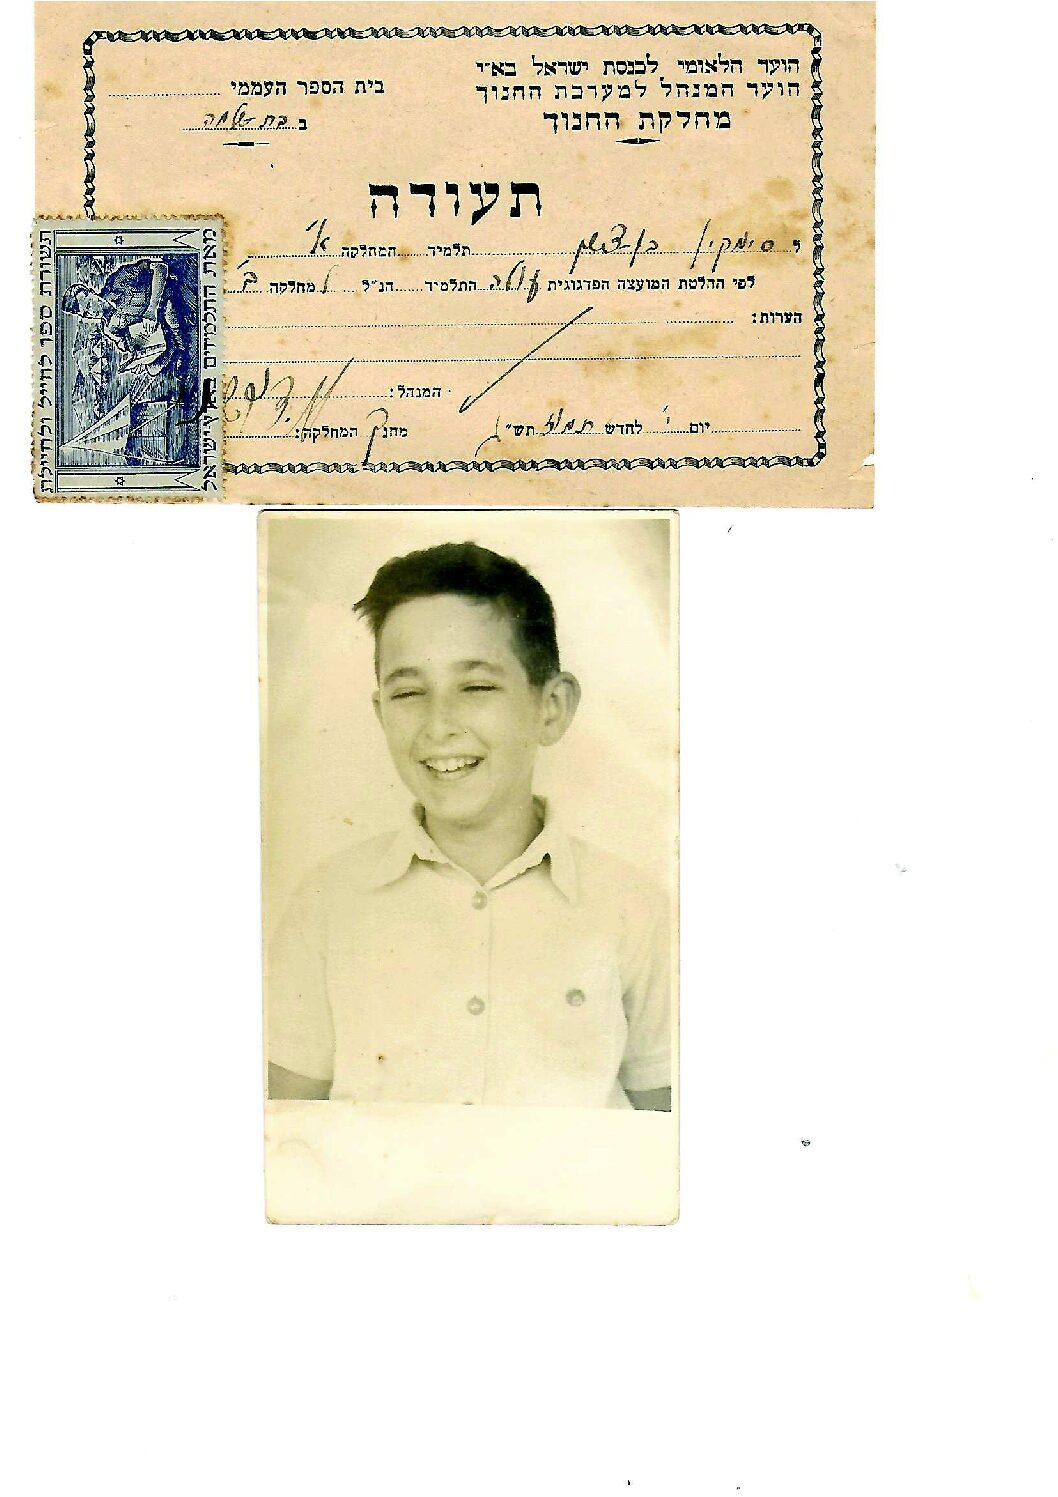 הועד הלאומי לכנסת ישראל בא״י
הועד המנהל למערכת החנוך
מחלקת החנוך
בית הספר העממי
ב בת שלמה
תעודה
ל סימקין בן ציון תלמיד המחלקה א׳
לפי החלטת המועצה הפדגוגית עולה התלמיד הנ״ל למחלקה ב׳
הערות:
המנהל:
יום י׳ לחדש תמוז תש״ג מחנך המחלקה:
מאת התלמידים בארץ ישראל
תשורת ספר לחייל ולחיילת